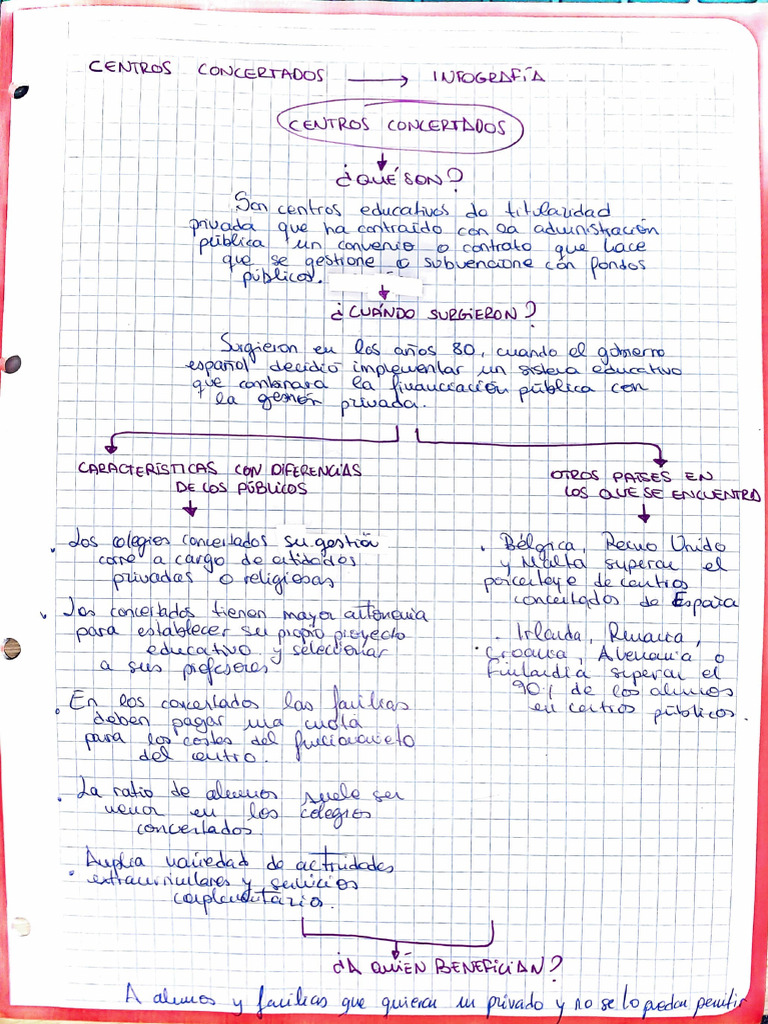 CENTROS CONCERTADOS → INFOGRAFÍA
CENTROS CONCERTADOS
¿QUÉ SON?
Son centros educativos de titularidad
privada que ha contraído con la administración
pública un convenio o contrato que hace
que se gestione o subvencione con fondos
públicos.
¿CUÁNDO SURGIERON?
Surgieron en los años 80, cuando el gobierno
español decidió implementar un sistema educativo
que combinara la financiación pública con
la gestión privada.
CARACTERÍSTICAS CON DIFERENCIAS
DE LOS PÚBLICOS
· Los colegios concertados su gestión
corre a cargo de entidades
privadas o religiosas
· Los concertados tienen mayor autonomía
para establecer su propio proyecto
educativo y seleccionar
a sus profesores
· En los concertados las familias
deben pagar una cuota
para los costes del funcionamiento
del centro.
· La ratio de alumnos suele ser
menor en los colegios
concertados.
Amplia variedad de actividades
· extracurriculares y servicios
complementarios.
OTROS PAISES EN
LOS QUE SE ENCUENTRA
· Bélgica, Reino Unido
y Malta superan el
porcentaje de centros
concertados de España
· Irlanda, Rumania,
· Croacia, Alemania o
Finlandia superan el
90% de los alumnos
en centros públicos.
¿A QUIÉN BENEFICIAN?
A alumnos y familias que quieran un privado y no se lo puedan permitir